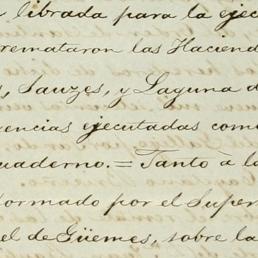 librada para la ejec
remataron las Haciend
, Sauzes, y Laguna d
rencias ejecutadas com
uaderno.= Tanto á la
formado por el Super
el de Güemes, sobre la